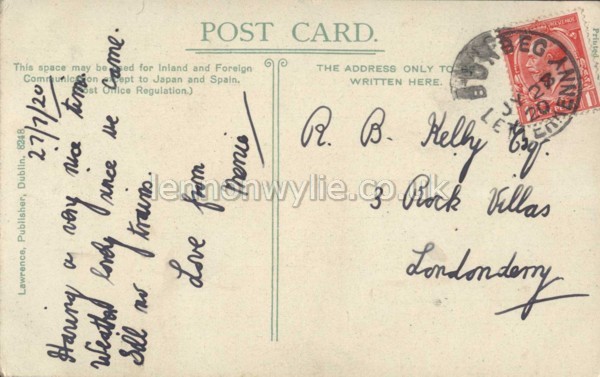 POST CARD.
This space may be used for Inland and Foreign
Communication except to Japan and Spain.
(Post Office Regulation.)
THE ADDRESS ONLY TO BE
WRITTEN HERE.
27/7/20
Having a very nice time.
Weather lovely since we came.
Still no trains.
Love from
R. B. Kelly Esq.
3 Rock Villas
Londonderry
BUNBEG
LETTERKENNY
20
Lawrence, Publisher, Dublin, 8248
lemonwylie.co.uk